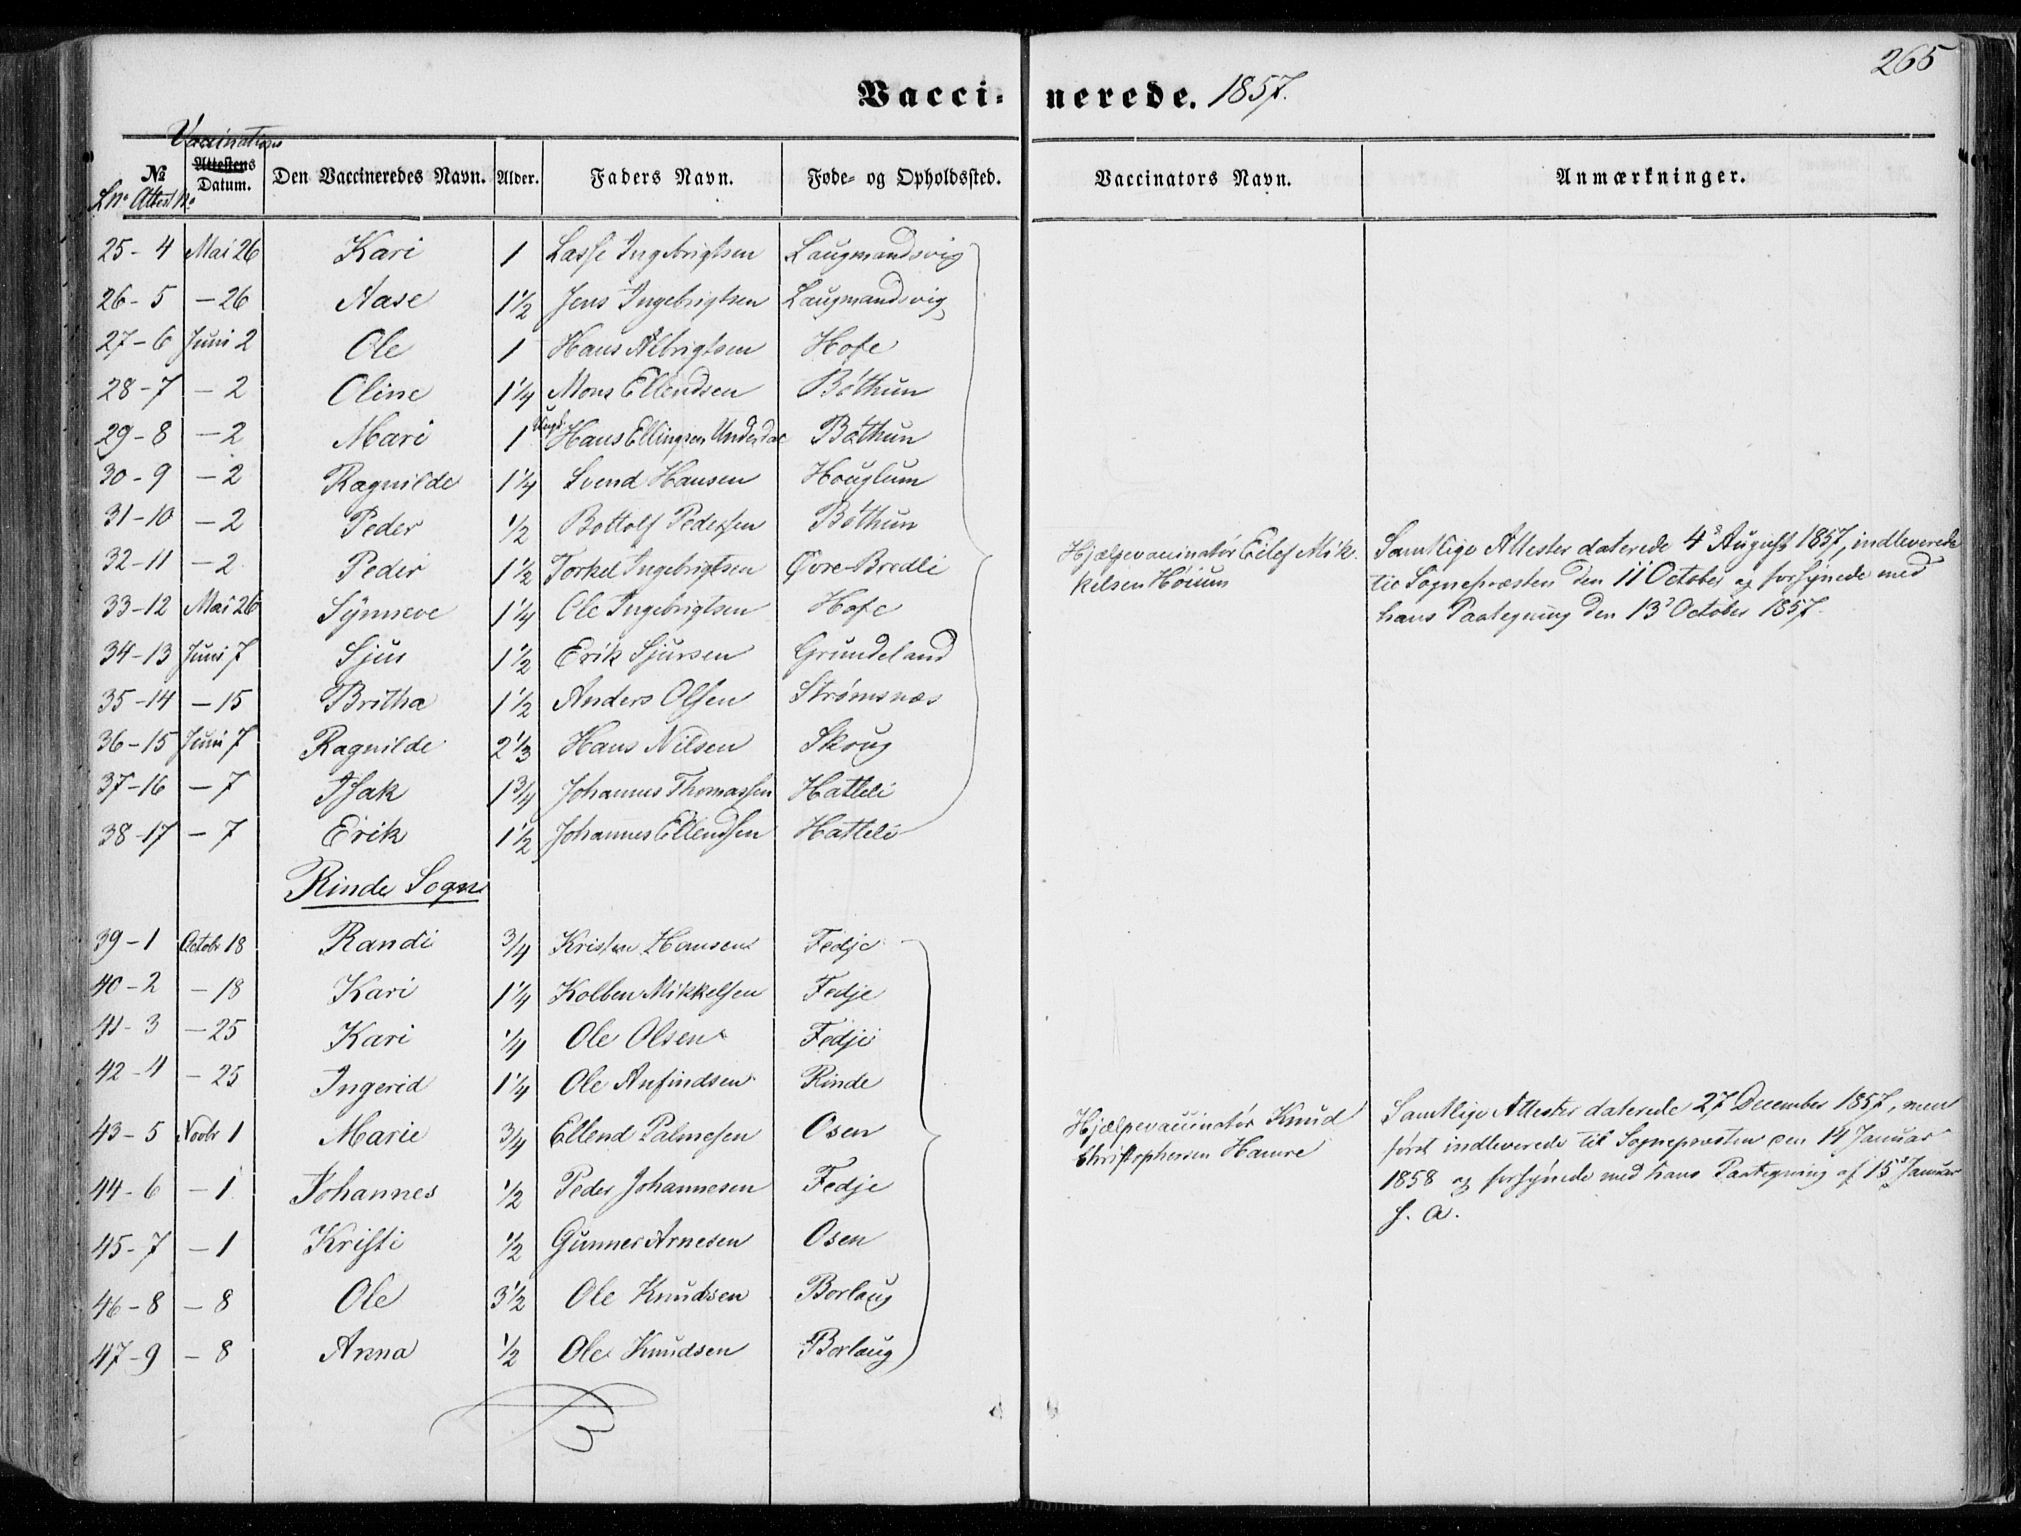 265
Vaccinerede. 1857.
Vaccinations
№ Attestens Datum. Den Vaccineredes Navn. Alder. Faders Navn. Føde- og Opholdssted. Vaccinators Navn. Anmærkninger.
Lno Attest No
25-4 Mai 26 Kari 1 Lasse Ingebrigtsen Laugmandsvig
26-5 -26 Aase 1 1/2 Jens Ingebrigtsen Laugmandsvig
27-6 Juni 2 Ole 1 Hans Albrigtsen Hofe
28-7 -2 Oline 1 1/4 Mons Ellendsen Bøthun
29-8 -2 Mari 1 Hans Ellingsen Underdal Bøthun
30-9 -2 Ragnilde 1 1/4 Svend Hansen Houglum
31-10 -2 Peder 1/2 Bottolf Pedersen Bøthun
32-11 -2 Peder 1 1/2 Torkel Ingebrigtsen Øvre-Bredli
33-12 Mai 26 Synneve 1 1/4 Ole Ingebrigtsen Hofe
34-13 Juni 7 Sjur 1 1/2 Erik Sjursen Grundeland
35-14 -15 Britha 1 1/2 Anders Olsen Strømsnæs
36-15 Juni 7 Ragnilde 2 1/3 Hans Nilsen Skoug
37-16 -7 Isak 1 3/4 Johannes Thomassen Hatleli
38-17 -7 Erik 1 1/2 Johannes Ellendsen Hatleli
Hjælpevaccinatør Eilef Mik-
kelsen Høium
Samtlige Attester daterede 4de August 1857, indleverede
til Sognepræsten den 11 October og forsynede med
hans Paategning den 13de October 1857.
Rinde Sogn
39-1 Octobr 18 Randi 3/4 Kristen Hansen Fedje
40-2 -18 Kari 1 1/4 Kolben Mikkelsen Fedje
41-3 -25 Kari 1/4 Ole Olsen Fedje
42-4 -25 Ingerid 1 1/4 Ole Anfindsen Rinde
43-5 Novbr 1 Marie 3/4 Ellend Palmesen Osen
44-6 -1 Johannes 1/2 Peder Johannesen Fedje
45-7 -1 Kristi 1/2 Gunner Arnesen Osen
46-8 -8 Ole 3 1/2 Ole Knudsen Borlaug
47-9 -8 Anna 1/2 Ole Knudsen Borlaug
Hjælpevaccinatør Knud
Christophersen Hamre
Samtlige Attester daterede 27 December 1857, men
først indleverede til Sognepræsten den 14 Januar
1858 og forsynede med hans Paategning af 15de Januar
s. a.